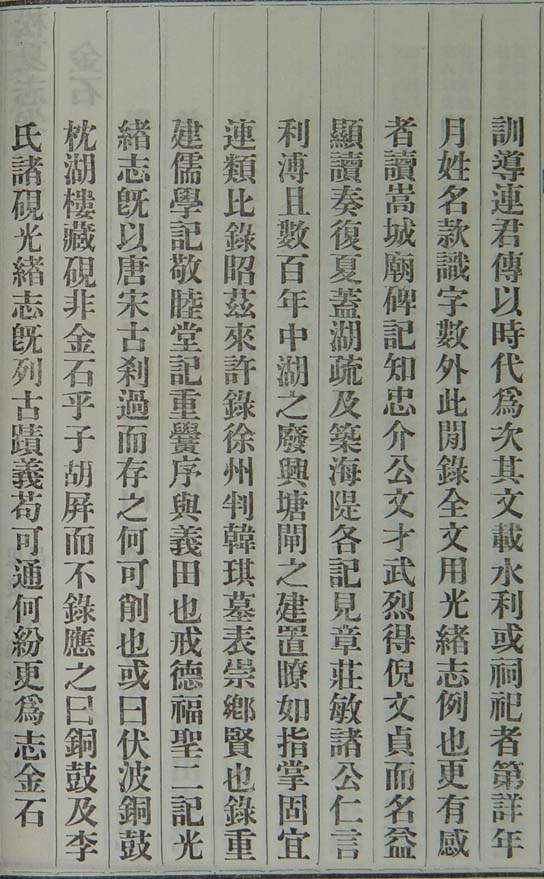 訓導連君傳以時代爲次其文載水利或祠祀者第詳年
月姓名款識字數外此閒錄全文用光緒志例也更有感
者讀嵩城廟碑記知忠介公文才武烈得倪文貞而名益
顯讀奏復夏蓋湖疏及築海隄各記見章莊敏諸公仁言
利溥且數百年中湖之廢興塘閘之建置瞭如指掌固宜
連類比錄昭茲來許錄徐州判韓琪墓表崇鄕賢也錄重
建儒學記敬睦堂記重黌序與義田也戒德福聖二記光
緒志旣以唐宋古刹過而存之何可削也或曰伏波銅鼓
枕湖樓藏硯非金石乎子胡屛而不錄應之曰銅鼓及李
氏諸硯光緒志旣列古蹟義苟可通何紛更爲志金石